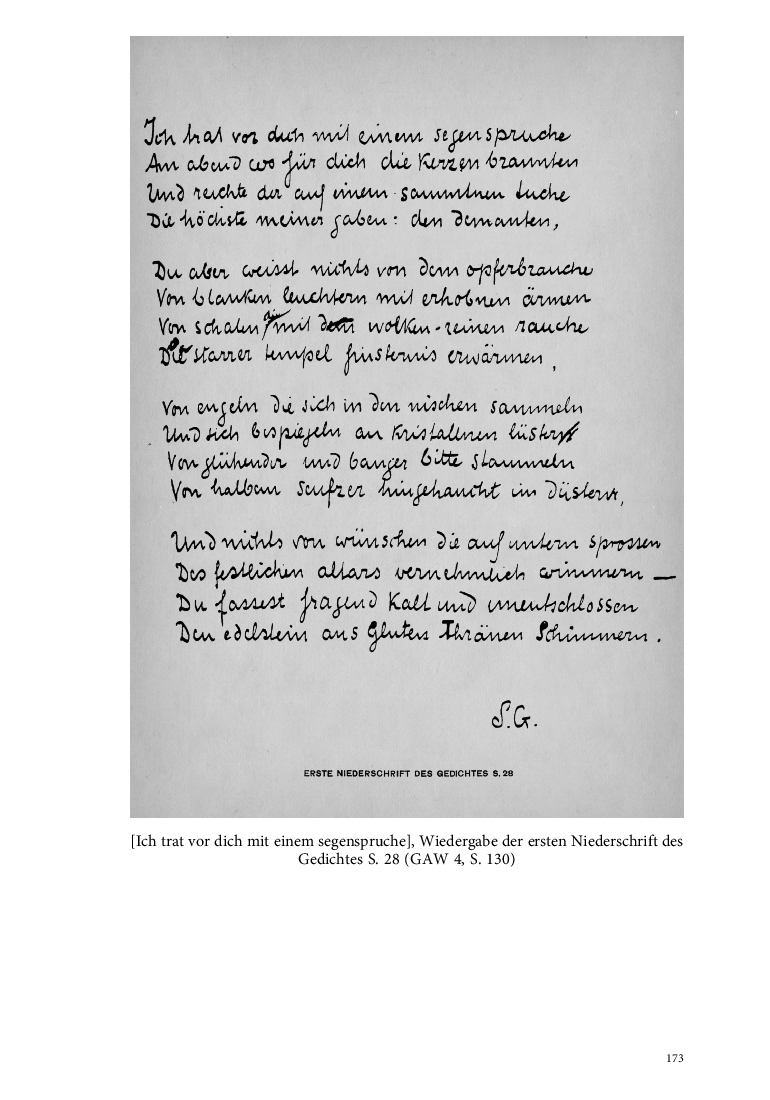 Ich trat vor dich mit einem segenspruche
Am abend wo für dich die Kerzen brannten
Und reichte dir auf einem sammtnen tuche
Die höchste meiner gaben: den demanten,
Du aber weisst nichts von dem opferbrauche
Von blanken leuchtern mit erhobnen ärmen
Von schalen die mit wolken-reinen rauche
Der starren tempel finsternis erwärmen,
Von engeln die sich in den nischen sammeln
Und sich bespiegeln an Kristallnen lüstern
Von glühender und banger bitte stammeln
Von halbem seufzer hingehaucht im düstern,
Und nichts von wünschen die auf untern sprossen
Des festlichen altars vernehmlich wimmern —
Du fassest fragend Kalt und unentschlossen
Den edelstein aus Gluten Thränen Schimmern.
S.G.
ERSTE NIEDERSCHRIFT DES GEDICHTES S. 28
[Ich trat vor dich mit einem segenspruche], Wiedergabe der ersten Niederschrift des
Gedichtes S. 28 (GAW 4, S. 130)
173